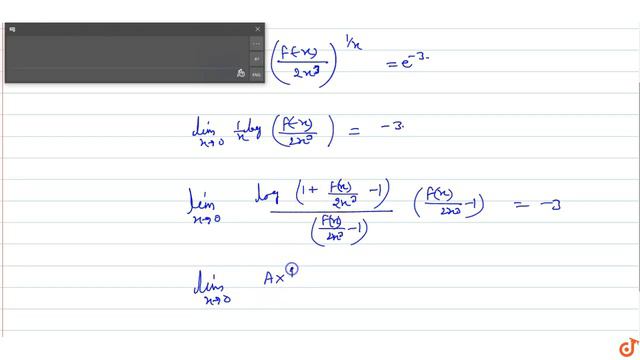 (f(-x)/2x³)^(1/x) = e^-3.
lim x→0 1/x log (f(-x)/2x³) = -3.
lim x→0 log (1 + f(x)/2x³ -1)/(f(x)/2x³ -1) (f(x)/2x³ -1) = -3
lim x→0 Ax
ENG
d